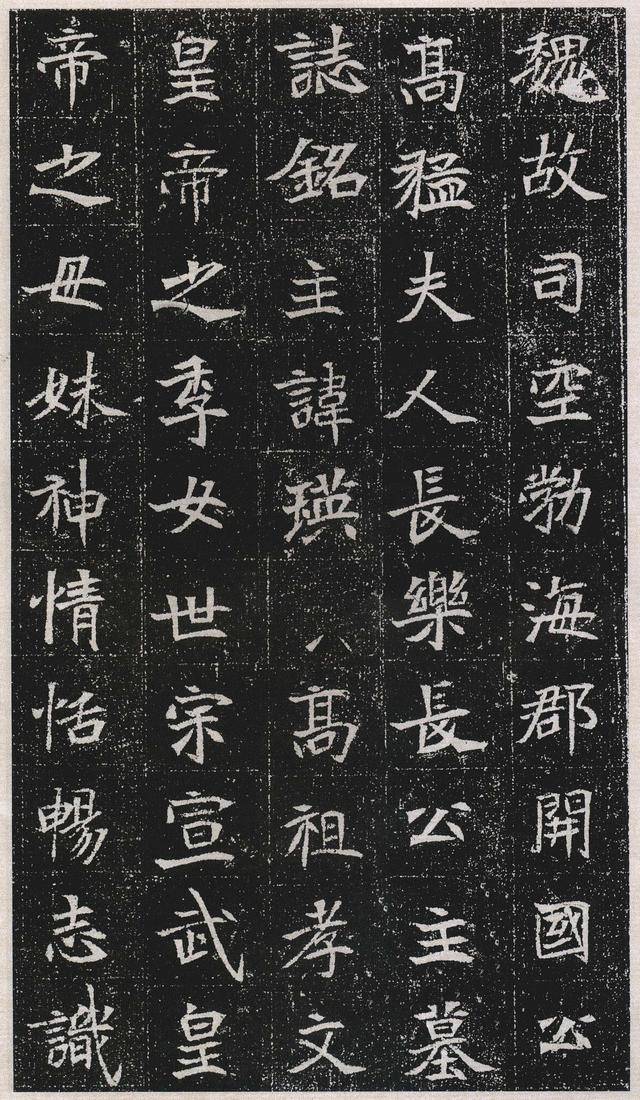 魏故司空勃海郡開國公
髙猛夫人長樂長公主墓
誌銘主諱瑛髙祖孝文
皇帝之季女世宗宣武皇
帝之母妹神情恬暢志識